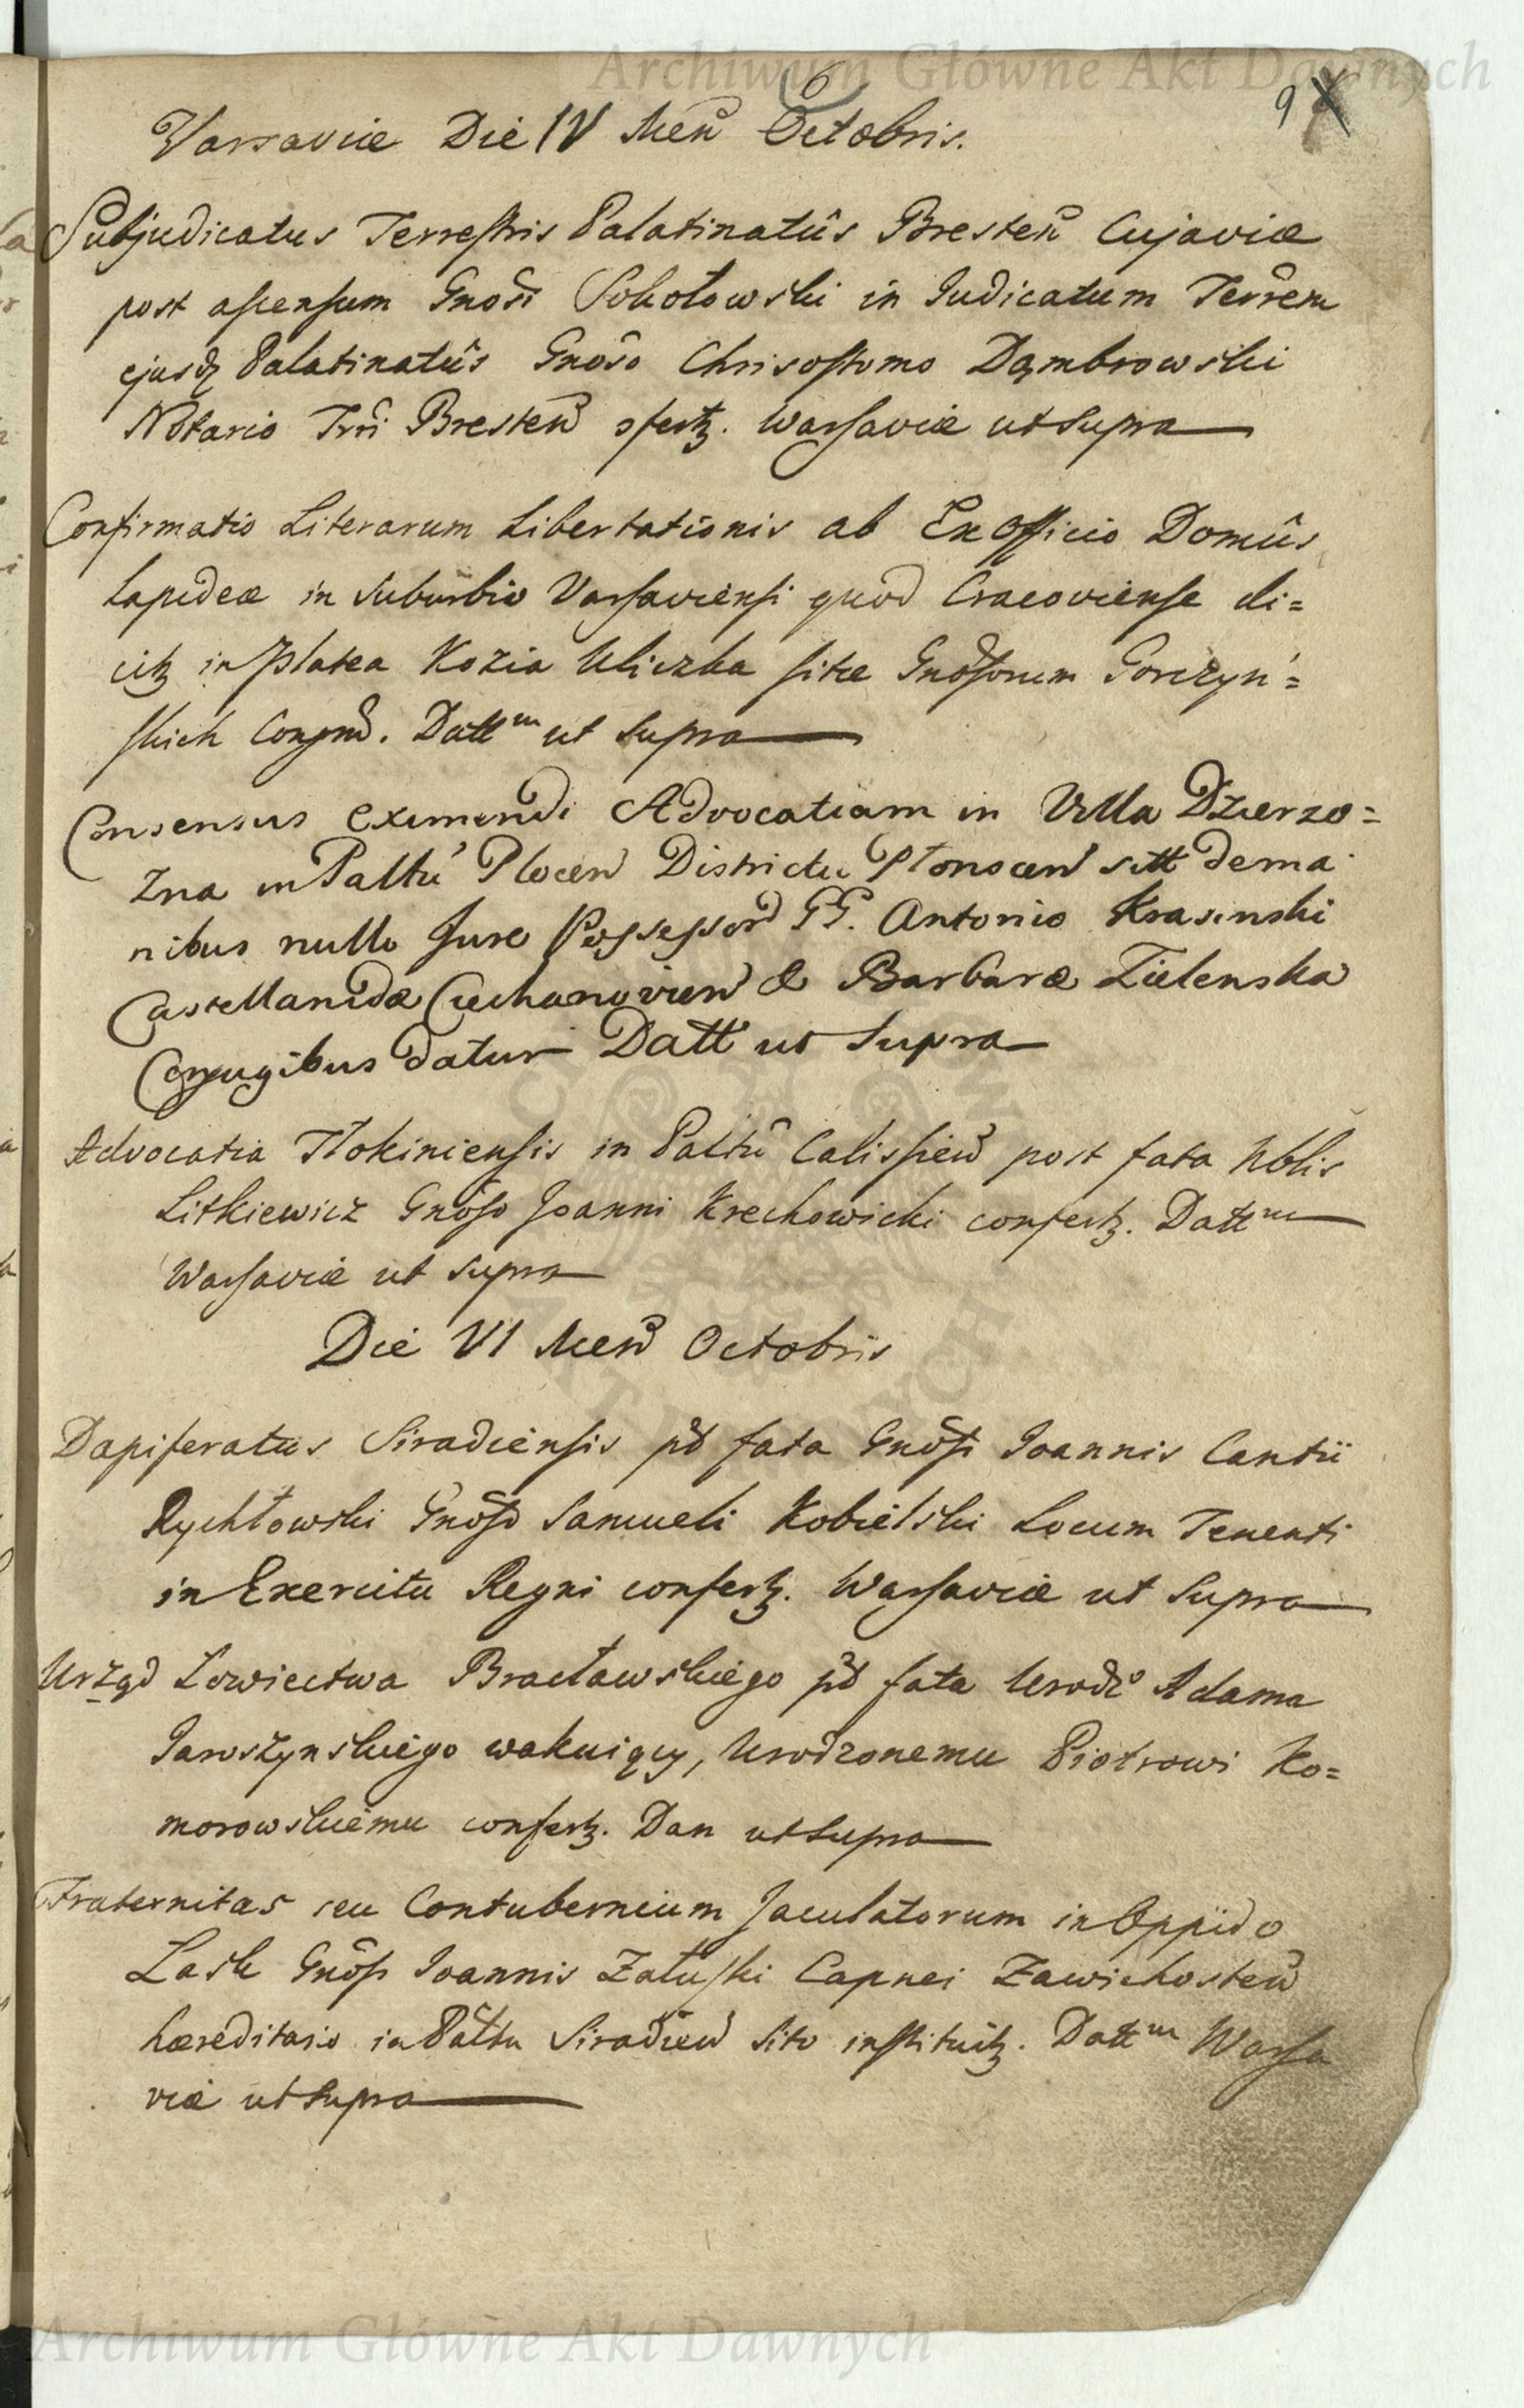 Archiwum Główne Akt Dawnych
6
9
Varsaviæ Die IV Men Octobris.
Subjudicatus Terrestris Palatinatûs Bresten Cujaviæ
post ascensum Gnosi Sokołowski in Judicatum Terrem
ejusdq Palatinatûs Gnoso Chrisostomo Dąmbrowski
Notario Trri Bresten ofertz. Warsaviæ ut Supra
Confirmatio Literarum Libertationis ab Ex Officio Domûs
Lapideæ in Suburbio Varsaviensi quod Cracoviense di=
citz in Platea Kozia Uliczka sitæ Gnosorum Gorczyń=
skich Conjnd. Dattm ut Supra
Consensus eximendi Advocatiam in Villa Dzierzo=
zna in Paltu Plocen Districtu Płonscen sitt de ma
nibus nullo Jure Possessord GG. Antonio Krasinski
Castellanidæ Ciechanovien & Barbaræ Zielenska
Conjugibus datur Datt ut Supra
Advocatia Tłokiniensis in Paltu Calissien post fata Nblis
Litkiewicz Gnoso Joanni Krechowicki confertz. Dattm
Warsaviæ ut Supra
Die VI Men Octobris
Dapiferatus Siradiensis pt fata Gnosi Joannis Cantii
Rychłowski Gnoso Samueli Kobielski Locum Tenenti
in Exercitu Regni confertz. Warsaviæ ut Supra
Urząd Łowiectwa Bracławskiego pt fata Urodzo Adama
Jaroszynskiego wakuiący, Urodzonemu Piotrowi Ko=
morowskiemu confertz. Dan ut Supra
Fraternitas seu Contubernium Jaculatorum in Oppido
Lask Gnosi Joannis Załuski Capnei Zawichosten
hæreditario in Paltu Siradien sito instituitz. Dattm Warsa
viæ ut Supra
Archiwum Główne Akt Dawnych